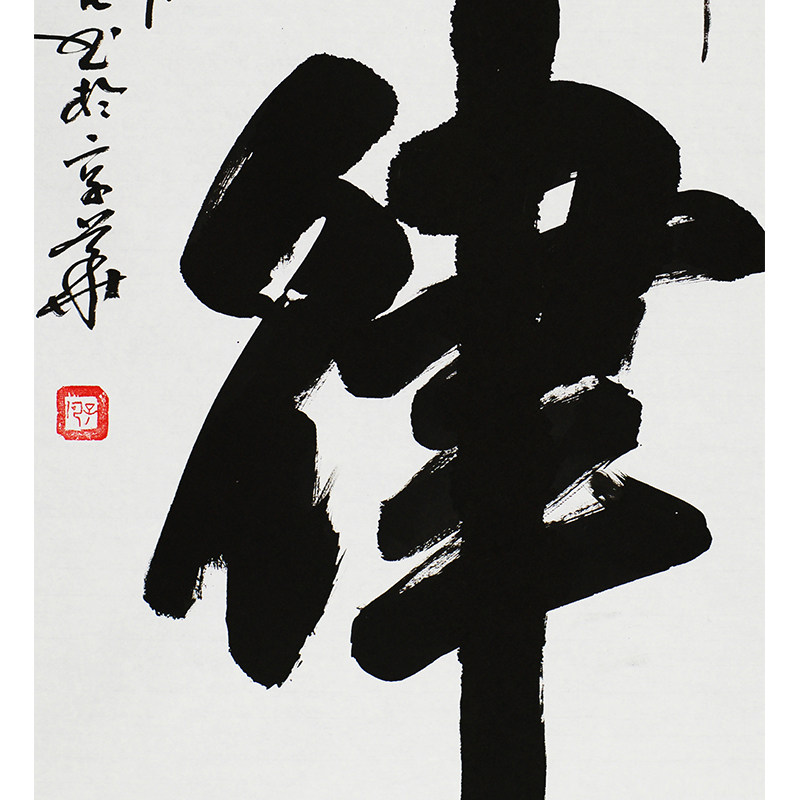 律
书於京華